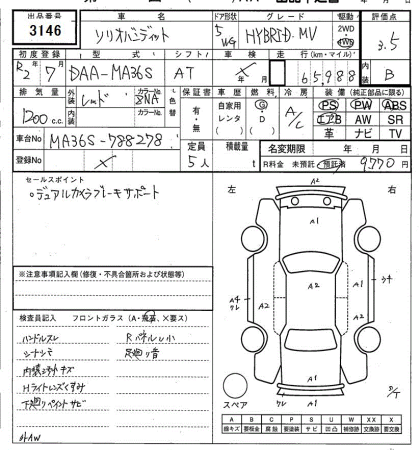 出品番号 車名 ドア形状 グレード 駆動 評価点
3146 ソリオバンディット 5 WG HYBRID MV 2WD 4WD 3.5
初度登録 型式 シフト 車検 走行(km・マイル) 内装
R2年 7月 DAA-MA36S AT 年 月 65,988 B
排気量 外装 カラーNo. 色替 保証書 車歴 燃料 冷房 装備(純正部品に限る)
1200 c.c. 内装 カラーNo. 有・無 自家用 レンタ G D A/C PS PW ABS
エアB AW SR
革 ナビ TV
車台No MA36S-788278 定員 積載量 名変期限 年 月 日
登録No 5人 t R料金 未預託 預託済 9770円
セールスポイント
・デュアルカメラブレーキサポート
左 右
※注意事項記入欄(修復・不具合箇所および状態等)
検査員記入 フロントガラス(A・飛石、×要ス)
ハンドルスレ Rパネル凹小
シートシミ 足廻り音
内張シキット キズ
Hライトレンズくすみ
下廻りペイント サビ
外AW
A2
A1
A1
A2
A4
A2
A2
A1
A1
スペア
A B C P S U W X XX
線キズ 要板金 腐食 要塗装 サビ 凹凸 補修跡 要交換 交換済